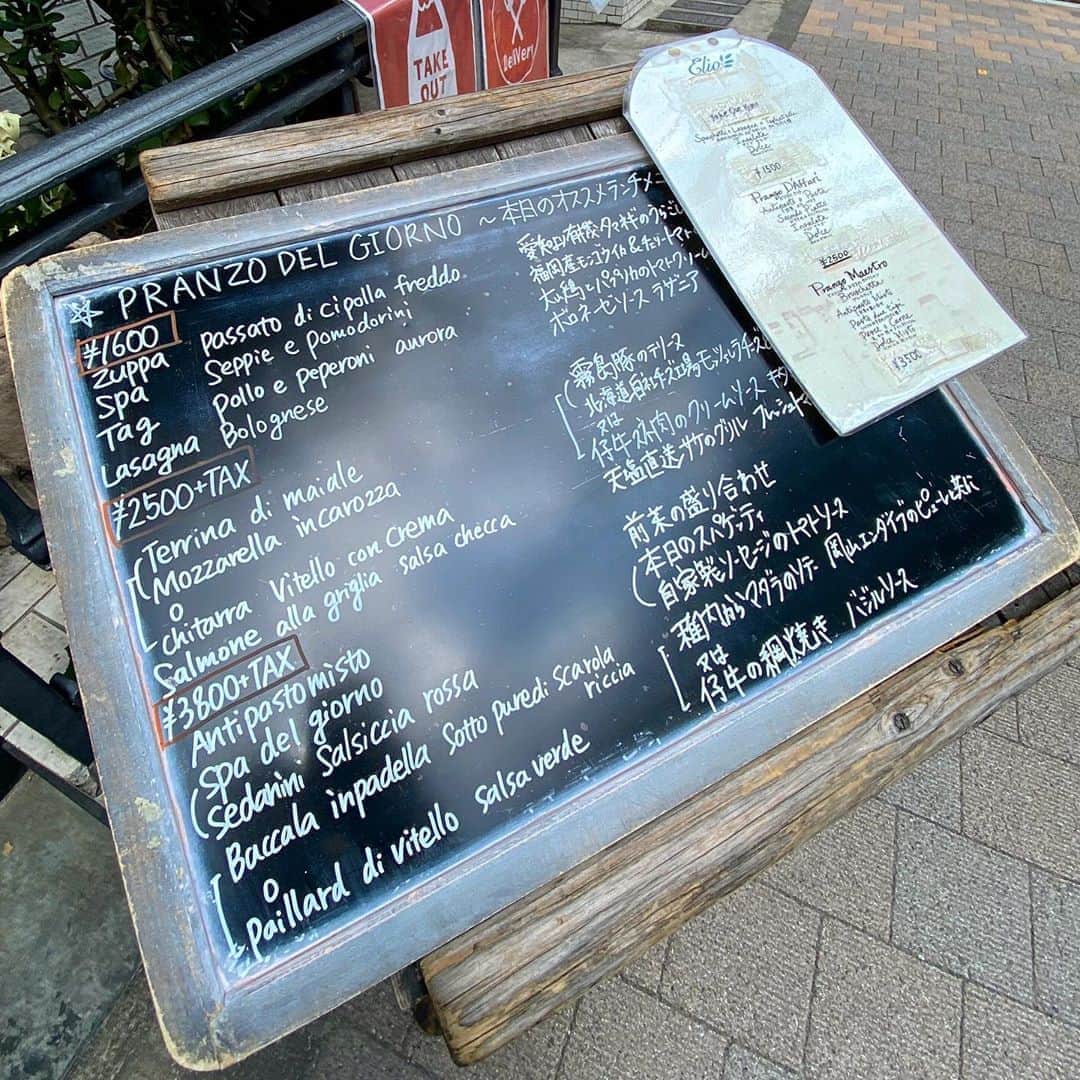 TAKE OUT
Delivery
☆ PRANZO DEL GIORNO ～本日のオススメランチメ
¥1600
Zuppa Passato di cipolla freddo
Spa Seppie e pomodorini
Tag Pollo e peperoni aurora
Lasagna Bolognese
¥2500+TAX
Terrina di maiale
Mozzarella incarozza
o
chitarra Vitello con Crema
Salmone alla griglia salsa checca
¥3800+TAX
Antipastomisto
Spa del giorno
Sedanini Salsiccia rossa
Baccala inpadella Sotto puredi scarola riccia
o
Paillard di vitello salsa verde
福岡産モンゴウイカ&チェリートマト
大山鶏とパプリカのトマトクリーム
ボロネーゼソース ラザニア
霧島豚のテリーヌ
北海道自社チーズ工場のモッツァレラチーズ
又は
仔牛スネ肉のクリームソース キタ
天塩直送サケのグリル フレッシュトマ
前菜の盛り合わせ
本日のスパゲッティ
自家製ソーセージのトマトソース
稚内からマダラのソテー 岡山エンダイブのピューレと共に
又は
仔牛の網焼き バジルソース
Elio
¥1500
Pranzo D'Affari
Antipasti e Pasta
Secondo Piatto
Insalata
Dolce
¥2600
Pranzo Maestro
Bruschetta
Antipasto Misto
Pasta due tipi
Pesce e Carne
Dolce Misto
¥3500